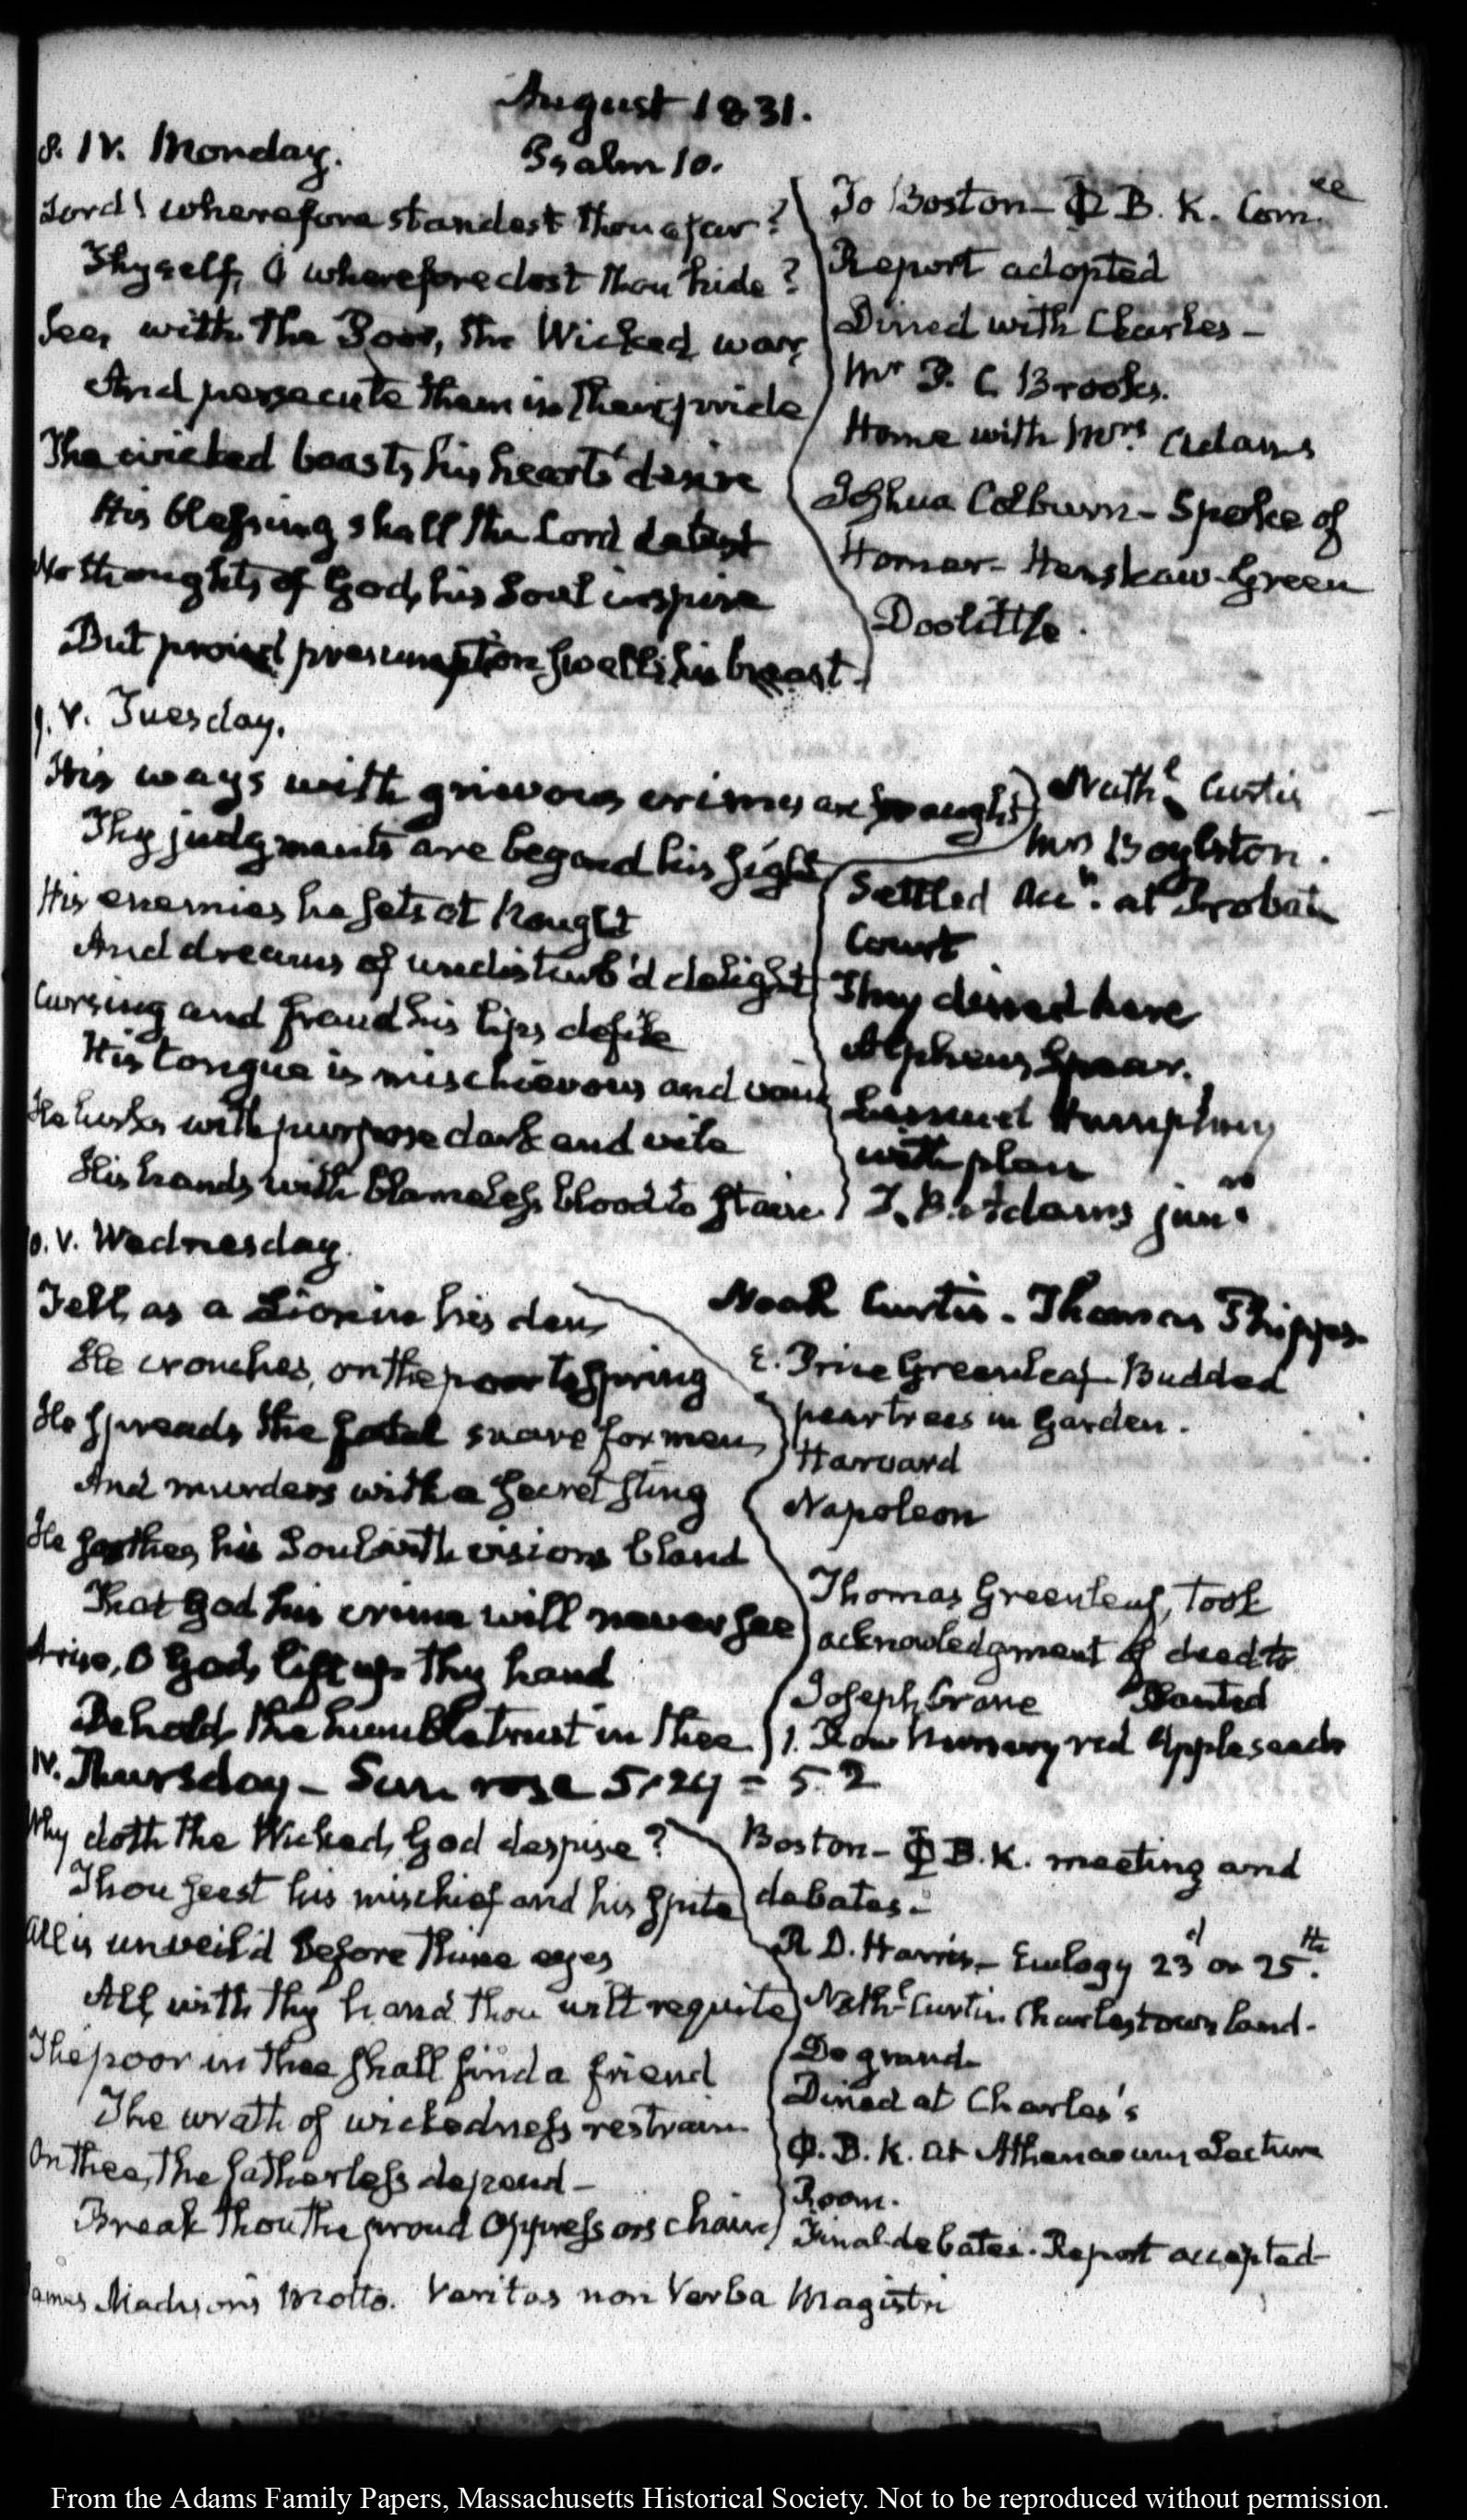 August 1831.
8. IV. Monday.
Psalm 10.
Lord! wherefore standest thou afar?
Thyself, O wherefore dost thou hide?
See, with the Poor, the Wicked war,
And persecute them in their pride
The wicked boasts his heart's desire
His blessing shall the Lord detest
No thoughts of God, his Soul inspire
But proud presumption swells his breast.
To Boston – Φ B. K. Com.ee
Report adopted
Dined with Charles –
Mr P. C. Brooks.
Home with Mrs. Adams
Joshua Colburn – Spoke of
Homer – Henshaw – Green
Doolittle.
9. V. Tuesday.
His ways with grievous crimes are fraught
Thy judgments are beyond his sight
His enemies he sets at nought
And dreams of undisturb'd delight
Cursing and fraud his lips defile
His tongue is mischievous and vain
He lurks with purpose dark and vile
His hands with blameless blood to stain.
Nathl. Curtis
Mrs Boylston.
Settled Accts. at Probate
Court
They dined here
Alpheus Spear.
Lemuel Humphrey
with plan
T. B. Adams junr.
10. V. Wednesday.
Fell, as a Lion in his den,
He crouches, on the poor to spring
He spreads the fatal snare for men,
And murders with a secret sting
He soothes his Soul with visions bland
That God his crime will never see
Arise, O God, lift up thy hand
Behold the humble trust in thee.
Noah Curtis – Thomas Phipps
E. Price Greenleaf – Budded
peartrees in Garden.
Harvard
Napoleon
Thomas Greenleaf, took
acknowledgment of deed to
Joseph Crane Planted
1. Row Nursery red Appleseeds
IV. Thursday – Sun rose 5:24 = 5.2
Why doth the Wicked, God despise?
Thou seest his mischief and his spite
All is unveil'd before thine eyes
All, with thy hand thou wilt requite
The poor in thee shall find a friend
The wrath of wickedness restrain
On thee, the fatherless depend –
Break thou the proud Oppressors chain
Boston – Φ B. K. meeting and
debates –
R D. Harris – Eulogy 23d or 25th.
Nathl. Curtis Charlestown land –
Degrand
Dined at Charles's
Φ. B. K. at Athenaeum Lecture
Room.
Final debates. Report accepted –
James Madison's Motto. Veritas non Verba Magistri
From the Adams Family Papers, Massachusetts Historical Society. Not to be reproduced without permission.